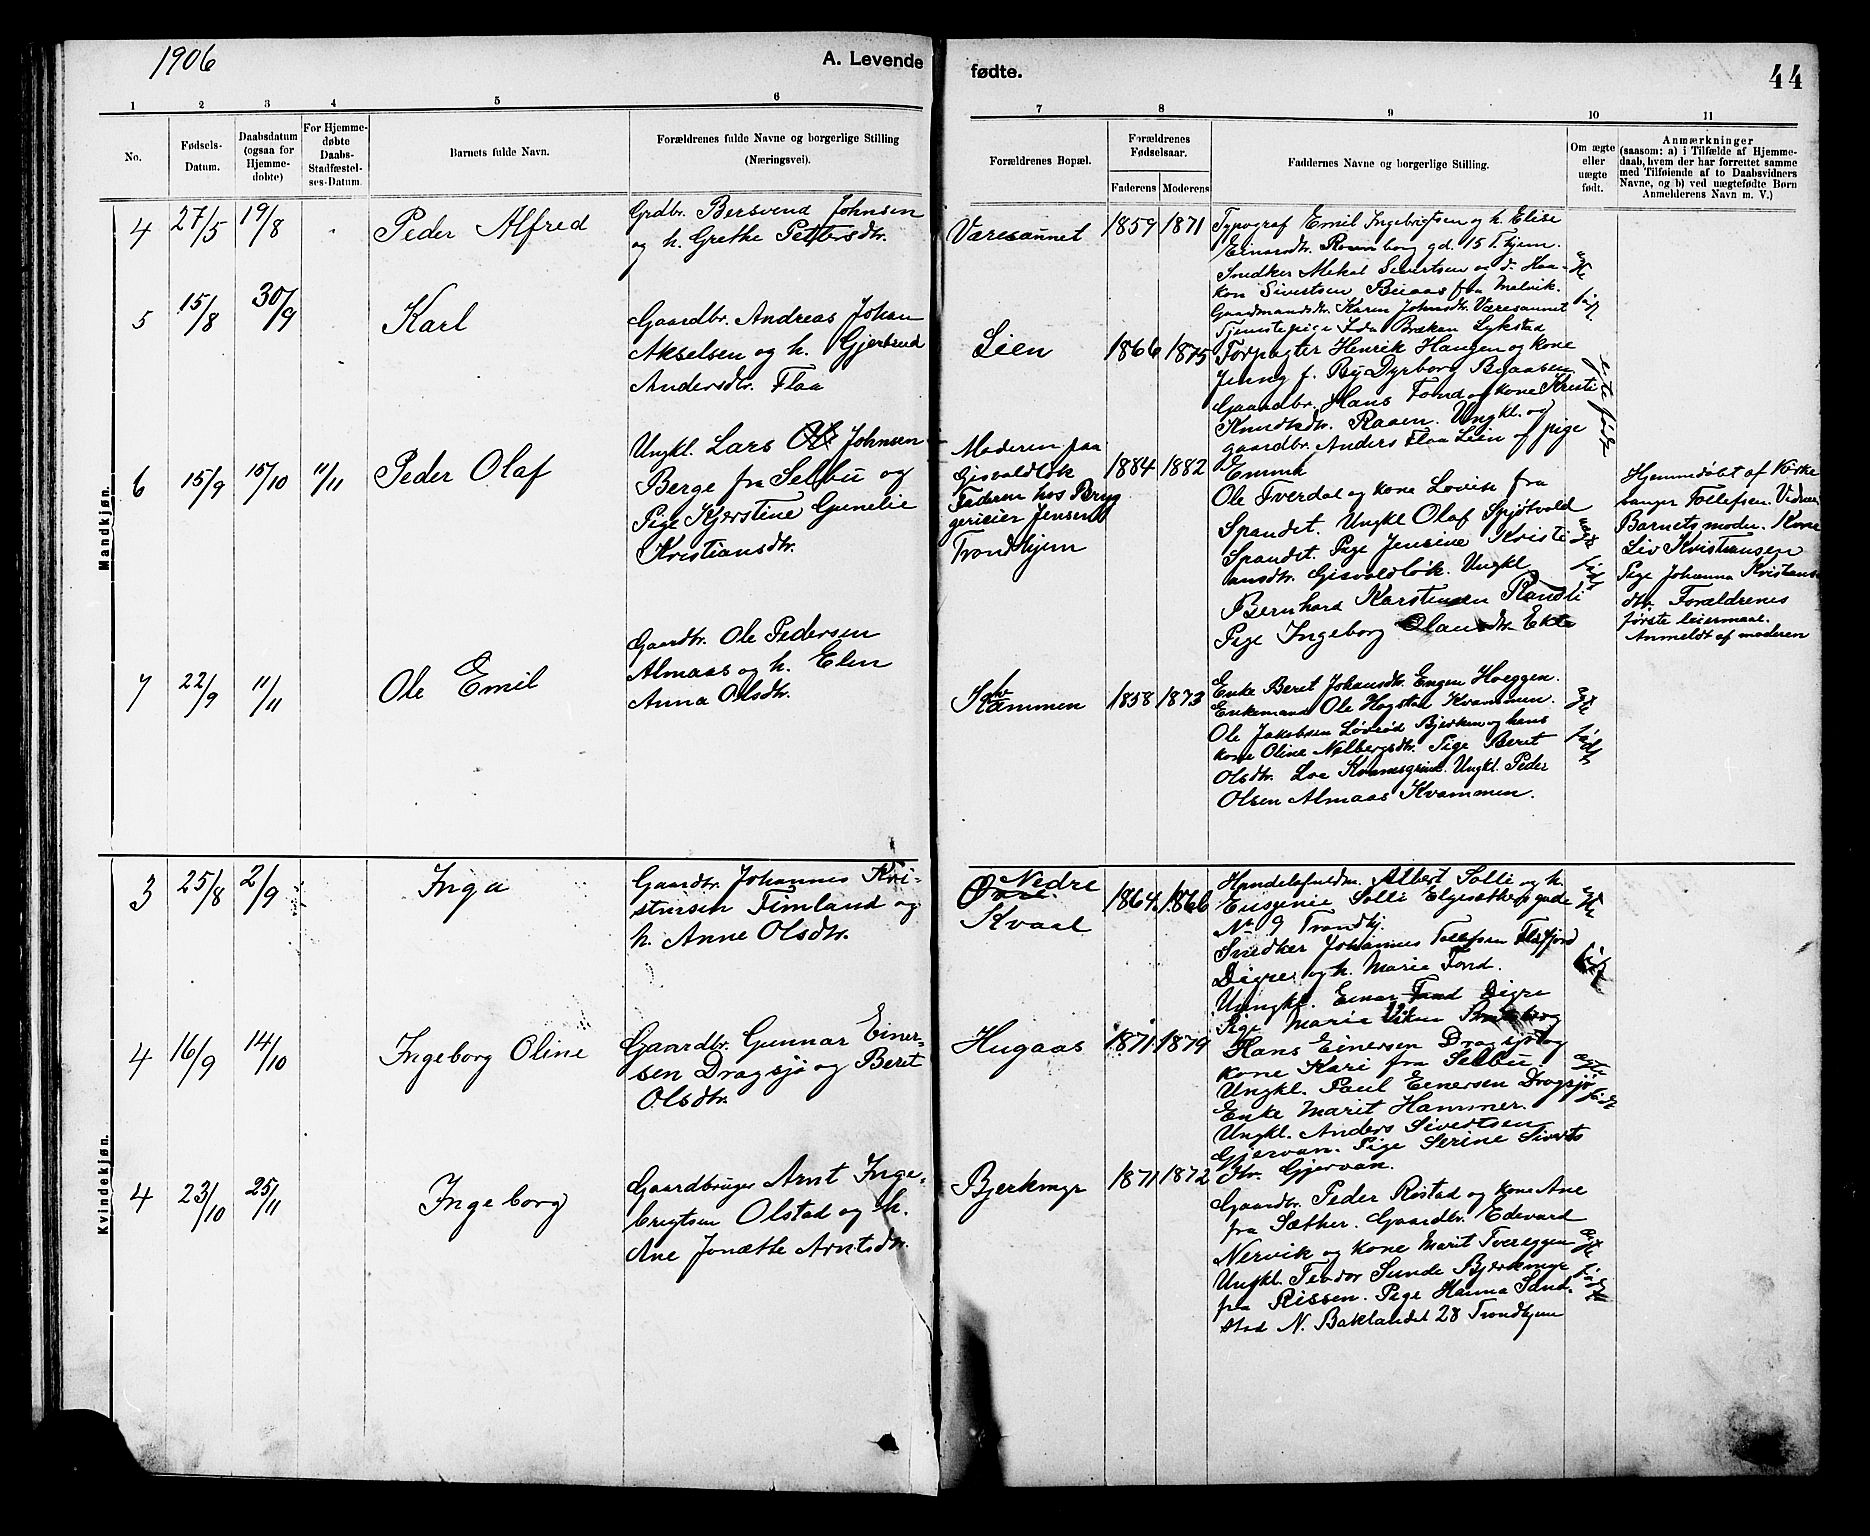 1906
A. Levende fødte.
44
1 2 3 4 5 6 7 8 9 10 11
No.
Fødsels-
Datum.
Daabsdatum
(ogsaa for
Hjemme-
døbte)
For Hjemme-
døbte
Daabs-
Stadfæstel-
ses-Datum.
Barnets fulde Navn.
Forældrenes fulde Navne og borgerlige Stilling
(Næringsvei).
Forældrenes Bopæl.
Forældrenes
Fødselsaar.
Faderens Moderens
Faddernes Navne og borgerlige Stilling.
Om ægte
eller
uægte
født.
Anmærkninger
(saasom: a) i Tilfælde af Hjemme-
daab, hvem der har forrettet samme
med Tilføiende af to Daabsvidners
Navne, og b) ved uægtefødte Børn
Anmelderens Navn m. V.)
Mandkjøn.
4 27/5 19/8 Peder Alfred
Grdbr. Bersvend Johnsen
og h. Grethe Pettersdtr.
Væresaunet 1859 1871
Typograf Emil Ingebrigtsen og h. Elise
Einarsdtr. Rosenborg gd. 15 T.hjem.
Snedker Mekal Sivertsen og d. Haa-
kon Sivertsen Beiaas fra Malvik.
Gaardmandsdtr. Karen Johnsdtr. Væresaunet
Tjenestepige Ida Bræken Lykstad
ægte født.
5 15/8 30/9 Karl
Gaardbr. Andreas Johan
Akselsen og h. Gjertrud
Andersdtr. Flaa
Lien 1866 1875
Forpagter Henrik Haugen og kone
Jenny f. By Dyrborg
Gaardbr. Hans Fond og kone Kristi
Knudtsdtr. Raaen. Ungkl. og
gaardbr. Anders Flaa Lien og pige
Emma
egte født
6 15/9 15/10 11/11 Peder Olaf
Ungkl. Lars Johnsen
Berge fra Selbu og
Pige Kjerstine Gunelie
Kristiansdtr.
Moderen paa
Gisvaldløk
Faderen hos Bryg
gerieier Jensen
Trondhjem
1884 1882
Ole Tverdal og kone Lovise fra
Spandet. Ungkl Olaf Spjøtvold
Spandet. Pige Jensine Kristi
ansdtr. Gisvaldløk. Ungkl
Bernhard Karstensen Ranøli
Pige Ingeborg Olausdtr. Ekle
uægte født
Hjemmedøbt af Kirke
sanger Tollefsen. Vidner
Barnets moder. Kone
Liv Kristiansen
Pige Johanna Kristians-
dtr. Forældrenes
første leiermaal.
Anmeldt af moderen
7 22/9 11/11 Ole Emil
Gaardbr. Ole Pedersen
Almaas og h. Elen
Anna Olsdtr.
Kvammen 1858 1873
Enke Beret Johansdtr. Engen Hoeggen.
Enkemand Ole Hogstad Kvammen.
Ole Jakobsen Løvrød Bjerken og hans
kone Oline Nilbergsdtr. Pige Beret
Olsdtr. Loe Kvamsgrind. Ungkl. Peder
Olsen Almaas Kvammen.
ægte født
Kvindekjøn.
3 25/8 2/9 Inga
Gaardbr. Johannes Kri-
stensen Timland og
h. Anne Olsdtr.
Øvre Nedre
Kvaal
1864 1866
Handelsfuldm. Albert Solli og h.
Eugenie Solli Elgesæther gade
No 9 Trondhj.
Snedker Johannes Tollefsen
Digre og h. Marie Fond.
Ungkl. Einar Digre
Pige Marie Viken
ægte født
4 16/9 14/10 Ingeborg Oline
Gaardbr. Gunnar Einer-
sen Dragsjø og Beret
Olsdtr.
Hugaas 1871 1879
Hans Einersen Dragsjø og
kone Kari fra Selbu.
Ungkl. Paul Einersen Dragsjø
Enke Marit Hammer.
Ungkl. Anders Sivertsen
Gjervan. Pige Serine Siverts
dtr. Gjervan.
ægte født
4 23/10 25/11 Ingeborg
Gaardbruger Arnt Inge-
brigtsen Olstad og h.
Ane Jonætte Arntsdtr.
Bjerkmyr 1871 1872
Gaardbr. Peder Ristad og kone Ane
fra Sæther. Gaardbr. Edevard
Nervik og kone Marit Tvereggen
Ungkl. Teodor Sunde Bjerkmyr
fra Rissen. Pige Hanna Sand-
stad N. Baklandet 28 Trondhjem
ægte født